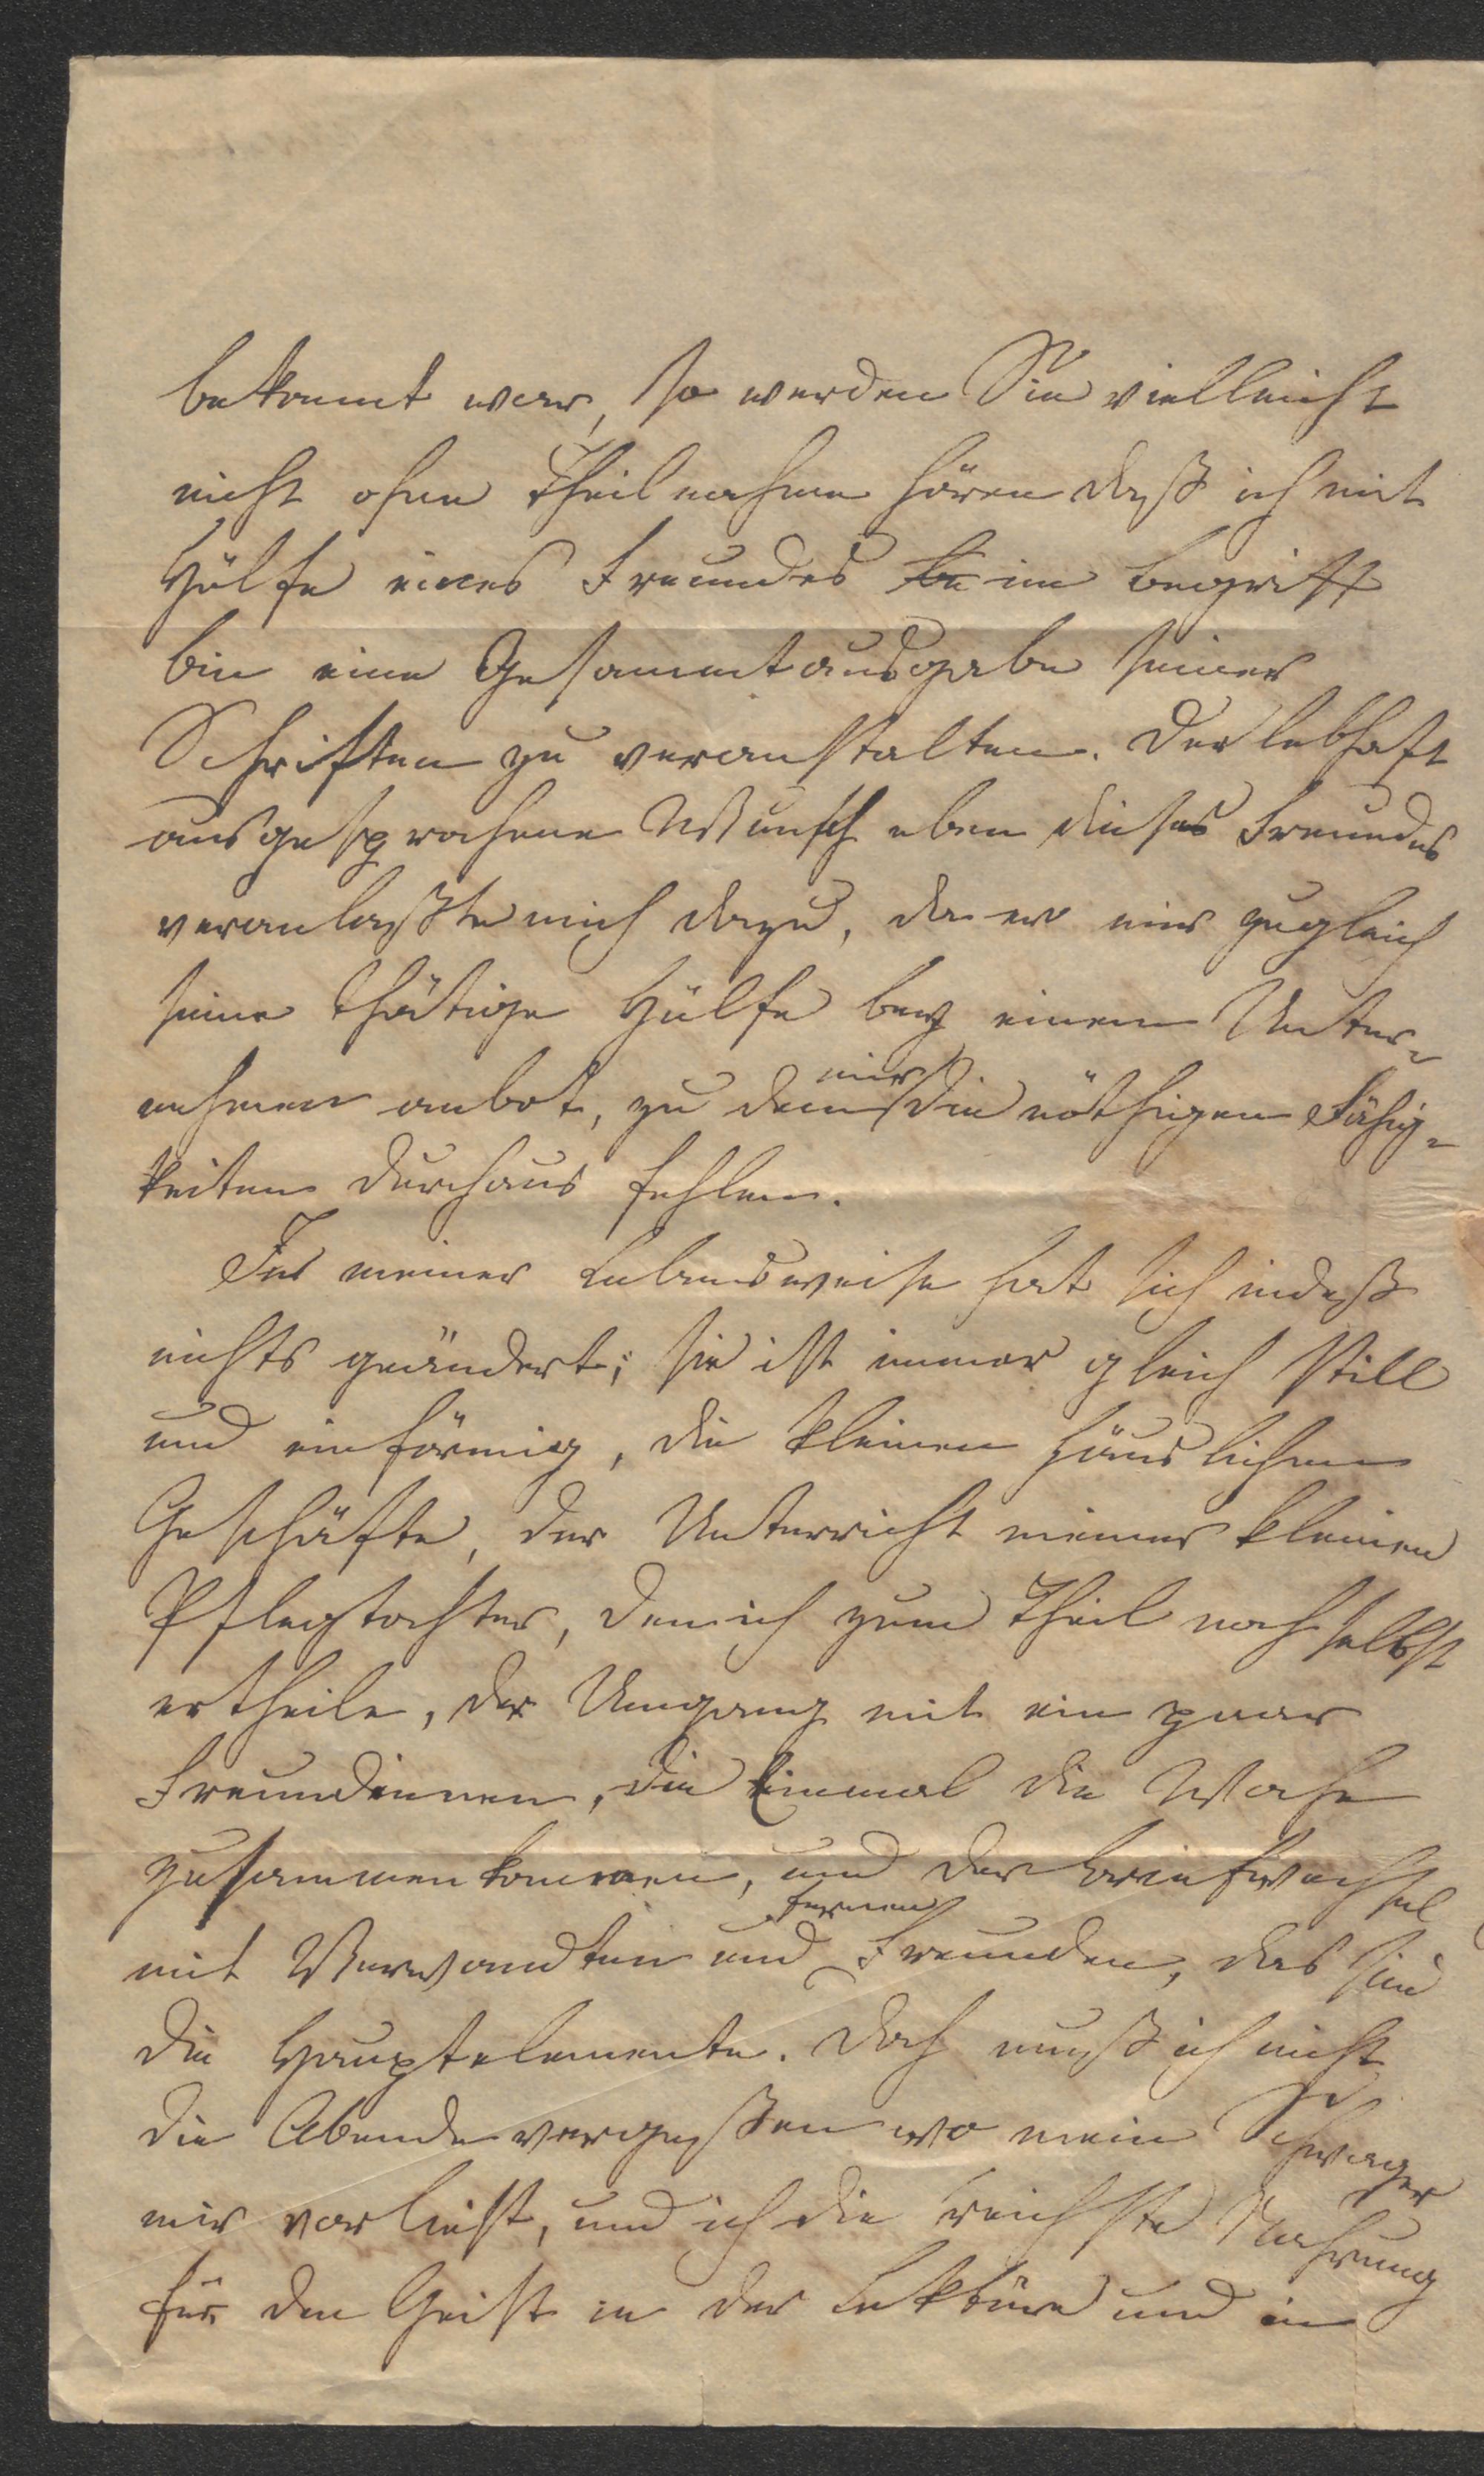 bekannt war, so werden Sie vielleicht
nicht ohne Theilnahme hören daß ich mit
Hülfe eines Freundes be im Begriff
bin eine Gesammtausgabe seiner
Schriften zu veranstalten. Der lebhaft
ausgesprochene Wunsch eben dieses Freundes
veranlaßte mich dazu, da er mir zugleich
seine thätige Hülfe bey einem Unter-
nehmen anbot, zu dem mir die nöthigen Fähig-
keiten durchaus fehlen.
In meiner Lebensweise hat sich indeß
nichts geändert; sie ist immer gleich still
und einförmig, die kleinen häuslichen
Geschäfte, der Unterricht meiner kleinen
Pflegtochter, den ich zum Theil noch selbst
ertheile, der Umgang mit ein paar
Freundinnen, die Einmal die Woche
zusammenkommen, und der Briefwechsel
mit Verwandten und fernen Freunden, das sind
die Hauptelemente. Doch muß ich nicht
die Abende vergeßen wo mein Schwager
mir vorliest, und ich die reichste Nahrung
für den Geist in der Lektüre und in